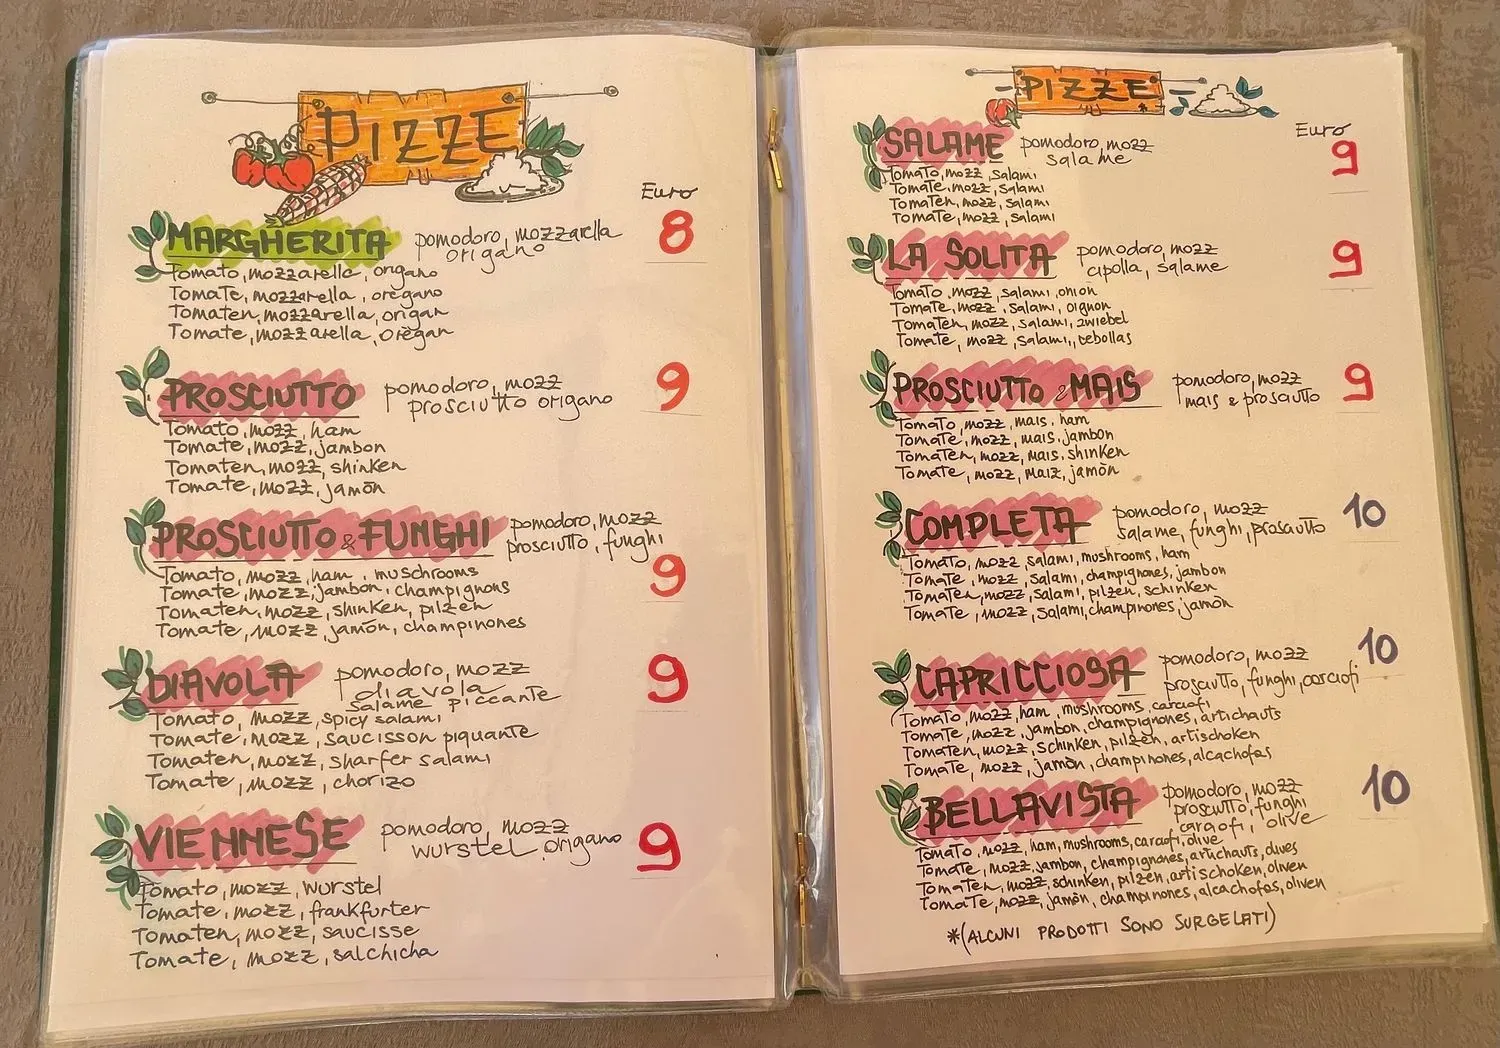 PIZZE
Euro
MARGHERITA pomodoro, mozzarella 8
origano
Tomato, mozzarella, origano
Tomate, mozzarella, oregano
Tomaten, mozzarella, origan
Tomate, mozzarella, orègan
PROSCIUTTO pomodoro, mozz 9
prosciutto origano
Tomato, mozz, ham
Tomate, mozz, jambon
Tomaten, mozz, shinken
Tomate, mozz, jamòn
PROSCIUTTO & FUNGHI pomodoro, mozz
prosciutto, funghi
9
Tomato, mozz, ham, muschrooms
Tomate, mozz, jambon, champignons
Tomaten, mozz, shinken, pilzen
Tomate, mozz, jamón, champinones
DIAVOLA pomodoro, mozz 9
diavola
salame piccante
Tomato, mozz, spicy salami
Tomate, mozz, saucisson piquante
Tomaten, mozz, sharfer salami
Tomate, mozz, chorizo
VIENNESE pomodoro, mozz 9
wurstel, origano
Tomato, mozz, wurstel
Tomate, mozz, frankfurter
Tomaten, mozz, saucisse
Tomate, mozz, salchicha
PIZZE*
Euro
SALAME pomodoro, mozz 9
salame
Tomato, mozz, salami
Tomate, mozz, salami
Tomaten, mozz, salami
Tomate, mozz, salami
LA SOLITA pomodoro, mozz 9
cipolla, salame
Tomato, mozz, salami, onion
Tomate, mozz, salami, oignon
Tomaten, mozz, salami, zwiebel
Tomate, mozz, salami,, cebollas
PROSCIUTTO & MAIS pomodoro, mozz 9
mais & prosciutto
Tomato, mozz, mais, ham
Tomate, mozz, mais, jambon
Tomaten, mozz, mais, shinken
Tomate, mozz, maiz, jamòn
COMPLETA pomodoro, mozz 10
salame, funghi, prosciutto
Tomato, mozz, salami, mushrooms, ham
Tomate, mozz, salami, champignones, jambon
Tomaten, mozz, salami, pilzen, schinken
Tomate, mozz, salami, champinones, jamòn
CAPRICCIOSA pomodoro, mozz 10
prosciutto, funghi, carciofi
Tomato, mozz, ham, mushrooms, carciofi
Tomate, mozz, jambon, champignones, artichauts
Tomaten, mozz, schinken, pilzen, artischoken
Tomate, mozz, jamòn, champinones, alcachofas
BELLAVISTA pomodoro, mozz 10
prosciutto, funghi
carciofi, olive
Tomato, mozz, ham, mushrooms, carciofi, olive
Tomate, mozz, jambon, champignones, artichauts, olives
Tomaten, mozz, schinken, pilzen, artischoken, oliven
Tomate, mozz, jamòn, champinones, alcachofas, oliven
*(ALCUNI PRODOTTI SONO SURGELATI)